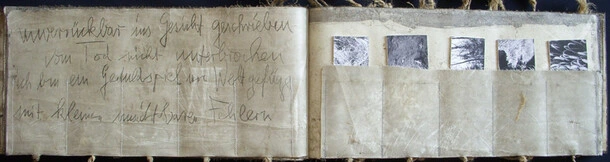 unverrückbar ins Gesicht geschrieben
vom Tod nicht unterbrochen
ich bin ein
mit kleinen Fehlern